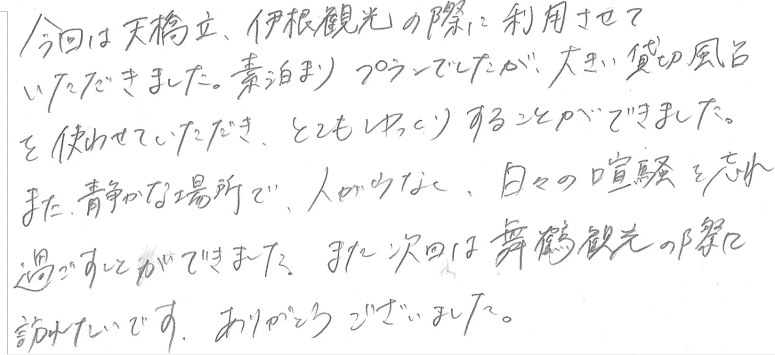 今回は天橋立、伊根観光の際に利用させて
いただきました。素泊まりプランでしたが、大きい貸切風呂
を使わせていただき、とてもゆっくりすることができました。
また、静かな場所で、人が少なく、日々の喧騒を忘れ
過ごすことができました。また次回は舞鶴観光の際に
訪れたいです。ありがとうございました。